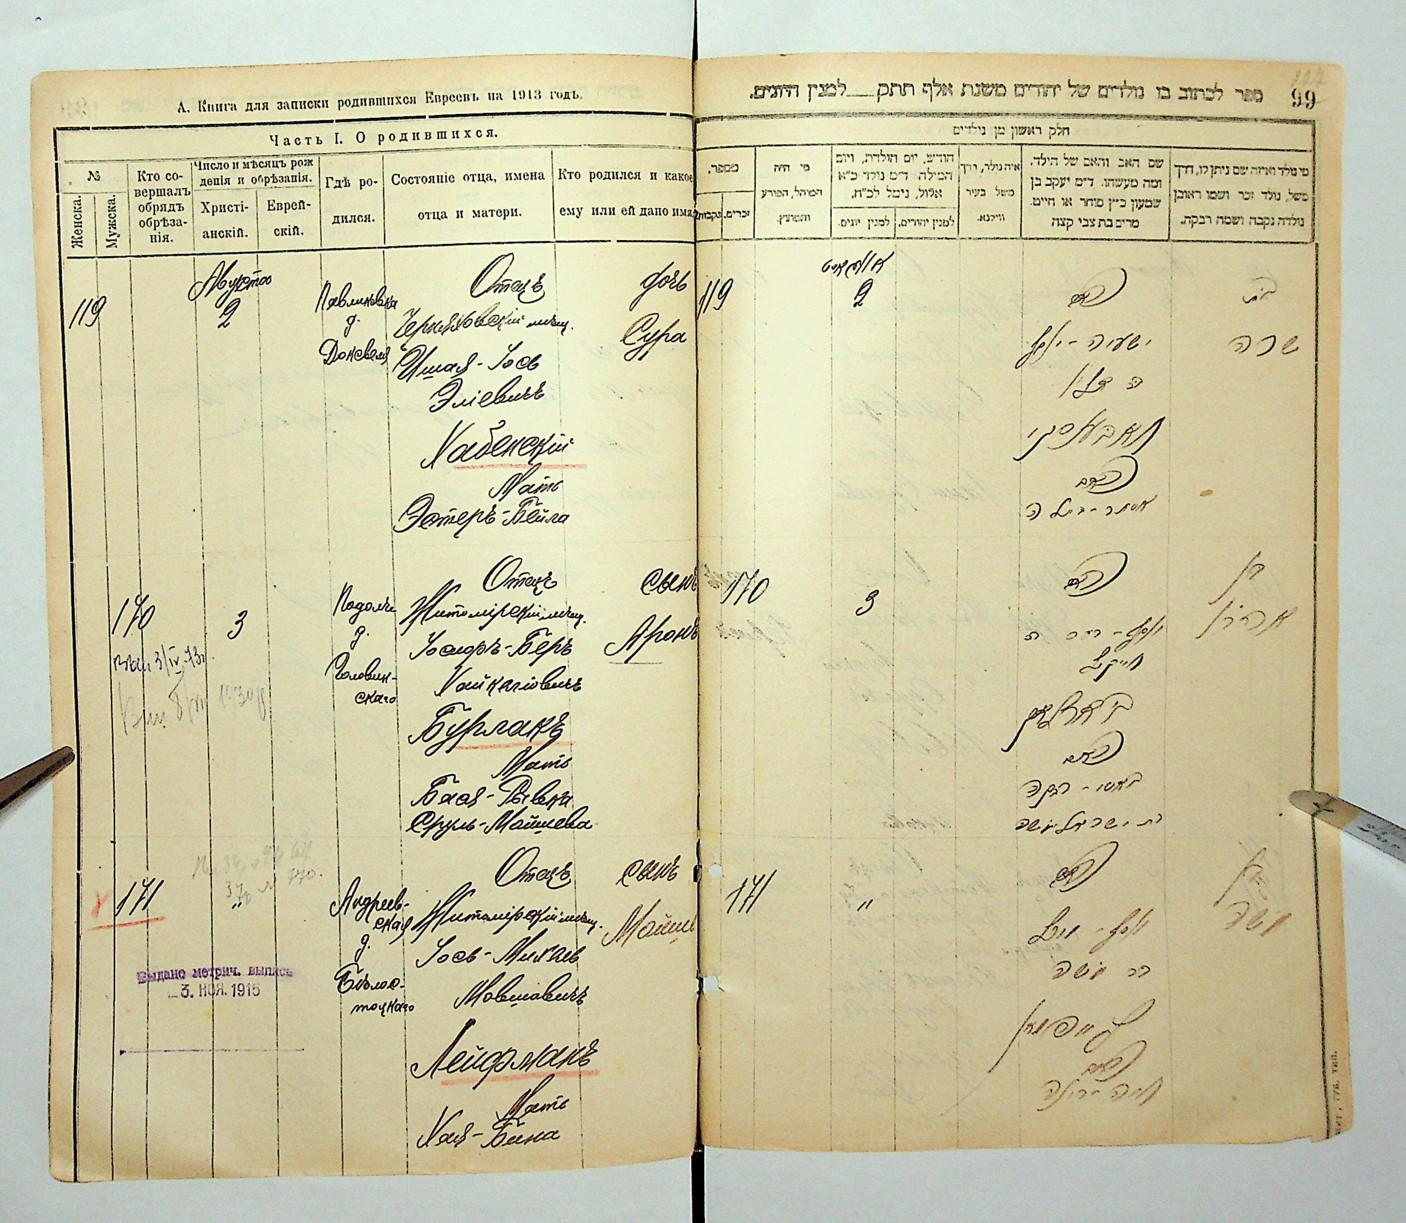 А. Книга для записки родившихся Евреевъ на 1913 годъ.
Часть I. О родившихся.
№
Женска.
Мужска.
Кто со-
вершалъ
обрядъ
обрѣза-
нія.
Число и мѣсяцъ рож
денія и обрѣзанія.
Христі-
анскій.
Еврей-
скій.
Гдѣ ро-
дился.
Состояніе отца, имена
отца и матери.
Кто родился и какое
ему или ей дано имя
119
Августа
2
Павликовка
д.
Отецъ
Черняховскій мѣщ.
Ишая-Іось
Эліевичъ
Хабенскій
Мать
Эстеръ-Бейла
дочь
Сура
170
3
Подолъ
д.
Головин-
скаго
Отецъ
Житомірскій мѣщ.
Іосифъ-Беръ
Хайкелевичъ
Бурлакъ
Мать
Бася-Рывка
Сруль-Мойшева
сынъ
Аронъ
171
"
Андреев-
ская
д.
Бѣлос-
тоцкаго
Отецъ
Житомірскій мѣщ.
Іось-Михель
Мовшовичъ
Лейфманъ
Мать
Хая-Бейна
сынъ
Мойше
Выдано метрич. выпись
3. НОЯ. 1915
ספר לכתוב בו נולדים של יהודים משנת אלף תתק___למנין היונים.
99
חלק ראשון מן נולדים
מספר.
זכרים.
נקבות
מי היה
המוהל, הפורע
והמוצץ.
חודש, יום הולדת, ויום
המילה. ד״מ נולד כ״א
אלול, נימל לכ״ח.
למנין יהודים.
למנין יונים.
איה נולד, דרך
משל בעיר
ווילנא.
שם האב והאם של הילד.
ומה מעשהו. ד״מ יעקב בן
שמעון כ״ץ סוחר או חייט.
מרים בת צבי קצה
מי נולד ואיזה שם ניתן לו, דרך
משל, נולד זכר ושמו ראובן
נולדה נקבה ושמה רבקה.
119
אויגוסט
2
האב
ישעיה-יוסף
חאבענסקי
האם
אסתר-ביילה
בת
שרה
170
3
האב
האם
בן
אהרן
171
"
האב
ב״ר משה
האם
בן
משה